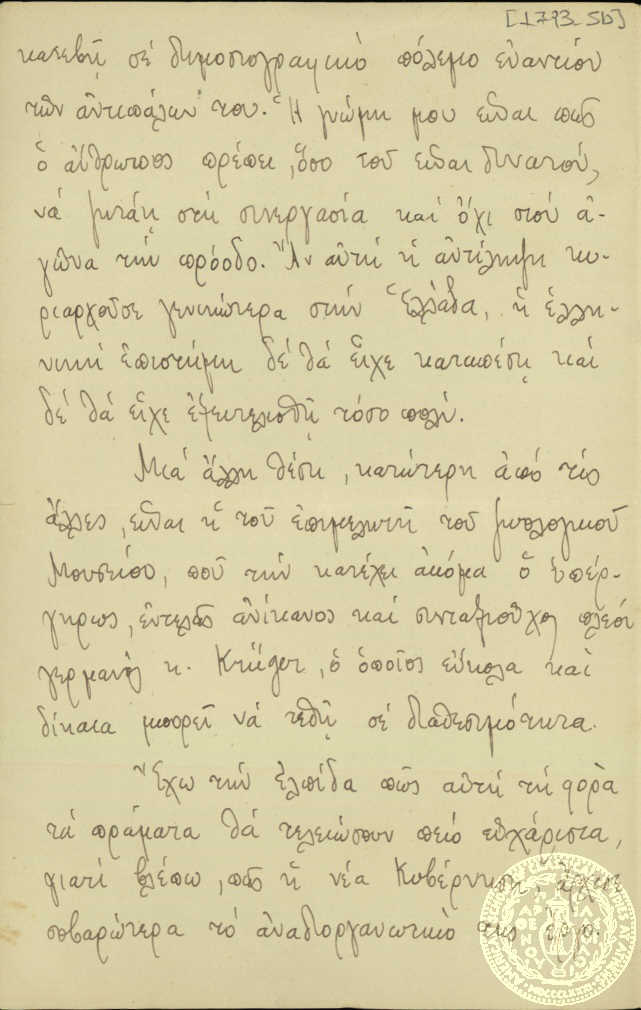 [1793 5b]
κατεβῆ σέ δημοσιογραφικό πόλεμο ἐναντίον
τῶν ἀντιπάλων του. Ἡ γνώμη μου εἶναι πῶς
ὁ ἄνθρωπος πρέπει, ὅσο τοῦ εἶναι δυνατόν,
νά ζητάῃ στή συνεργασία καί ὄχι στόν ἀ-
γῶνα τήν πρόοδο. Ἄν αὐτή ἡ ἀντίληψη κυ-
ριαρχοῦσε γενικώτερα στήν Ἑλλάδα, ἡ ἑλλη-
νική ἐπιστήμη δέ θά εἶχε καταπέσῃ καί
δέ θά εἶχε ἐξευτελισθῆ τόσο πολύ.
Μιά ἄλλη θέση, κατώτερη ἀπό τίς
ἄλλες, εἶναι ἡ τοῦ ἐπιμελητή τοῦ ζωολογικοῦ
Μουσείου, ποῦ τήν κατέχει ἀκόμα ὁ ὑπέρ-
γηρως, ἐντελῶς ἀνίκανος καί συνταξιοῦχος πλέον
γερμανός κ. Krüger, ὁ ὁποῖος εὔκολα καί
δίκαια μπορεῖ νά τεθῇ σέ διαθεσιμότητα.
Ἔχω τήν ἐλπίδα πῶς αὐτή τή φορά
τά πράματα θά τελειώσουν πειό εὐχάριστα,
γιατί βλέπω, πῶς ἡ νέα Κυβέρνηση, ἄρχισε
σοβαρώτερα τό ἀναδιοργανωτικό της ἔργο.